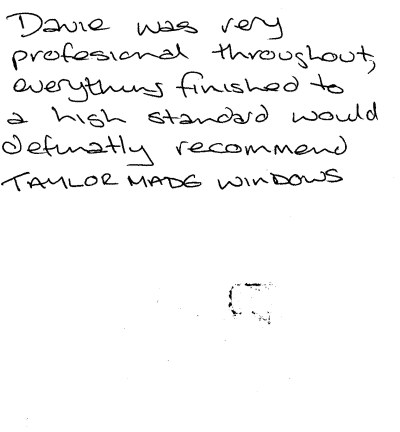 Davie was very
profesional throughout,
everything finished to
a high standard would
definatly recommend
TAYLOR MADE WINDOWS